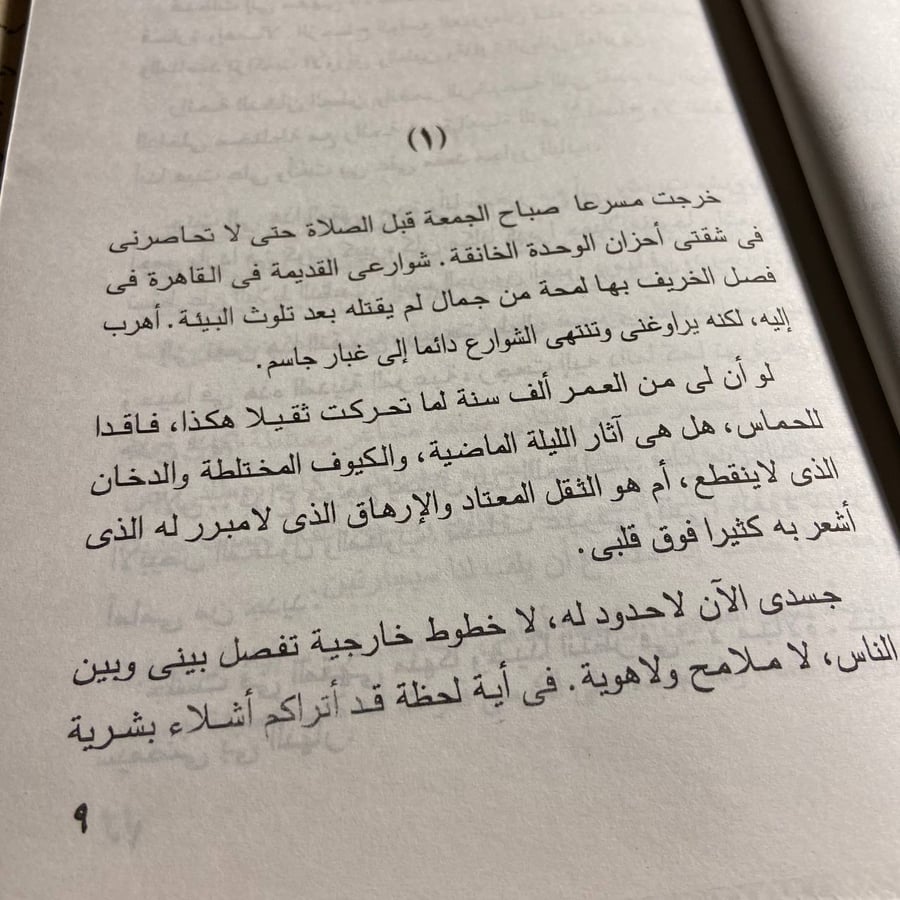 (١)
خرجت مسرعا صباح الجمعة قبل الصلاة حتى لا تحاصرنى
فى شقتى أحزان الوحدة الخانقة. شوارعى القديمة فى القاهرة فى
فصل الخريف بها لمحة من جمال لم يقتله بعد تلوث البيئة. أهرب
إليه، لكنه يراوغنى وتنتهى الشوارع دائما إلى غبار جاسم.
لو أن لى من العمر ألف سنة لما تحركت ثقيلا هكذا، فاقدا
للحماس، هل هى آثار الليلة الماضية، والكيوف المختلطة والدخان
الذى لاينقطع، أم هو الثقل المعتاد والإرهاق الذى لامبرر له الذى
أشعر به كثيرا فوق قلبى.
جسدى الآن لاحدود له، لا خطوط خارجية تفصل بينى وبين
الناس، لا ملامح ولاهوية. فى أية لحظة قد أتراكم أشلاء بشرية
٩